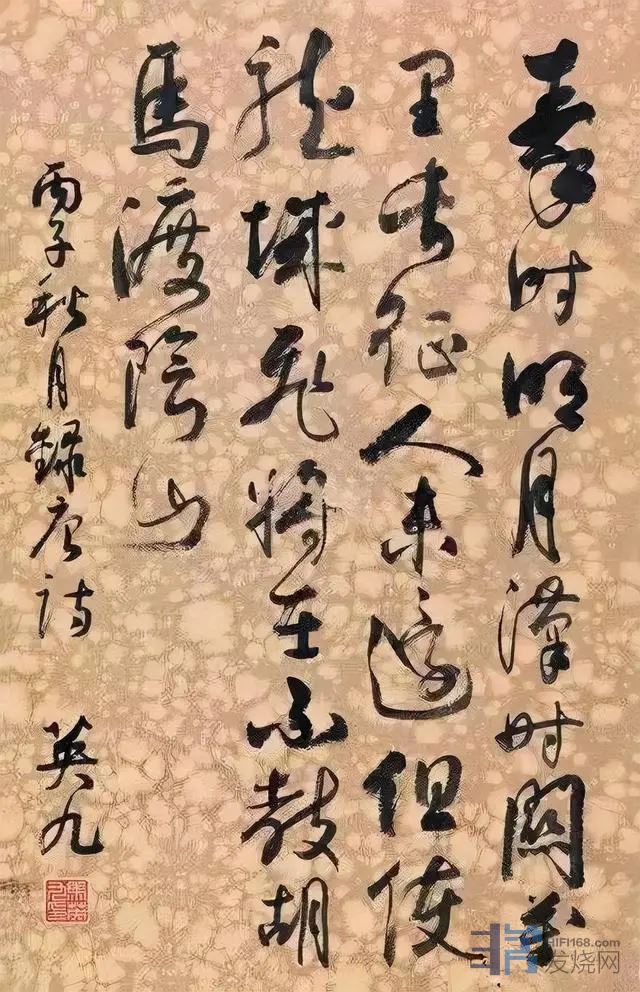 秦时明月漢时關萬
里长征人未還但使
龍城飛將在不教胡
馬渡陰山
丙子秋月録唐诗
英九
HIFI168.com
发烧网